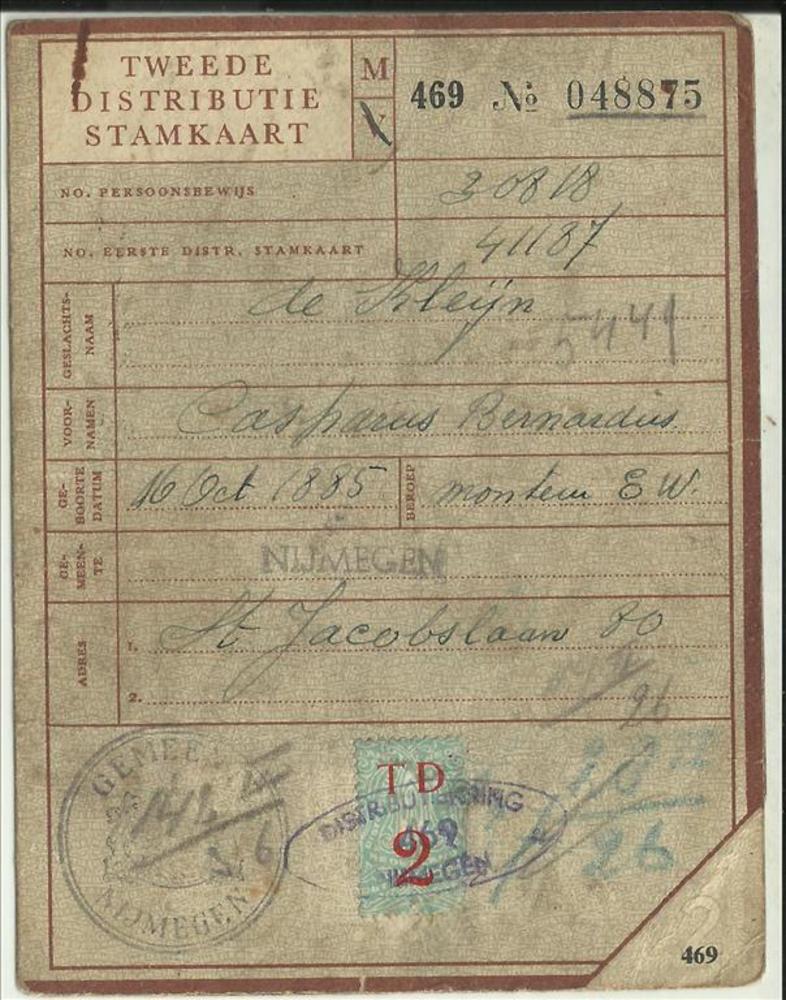 TWEEDE
DISTRIBUTIE
STAMKAART
M
V
469 No 048875
NO. PERSOONSBEWIJS
30818
NO. EERSTE DISTR. STAMKAART
41187
GESLACHTS-
NAAM
de Kleijn
5441
VOOR-
NAMEN
Casparus Bernardus
GE-
BOORTE
DATUM
16 Oct 1885
BEROEP
monteur E W.
GE-
MEEN-
TE
NIJMEGEN
ADRES
1. St Jacobslaan 80
2.
26
GEMEENTE
NIJMEGEN
TD
2
DISTRIBUTIEKRING
469
NIJMEGEN
26
469